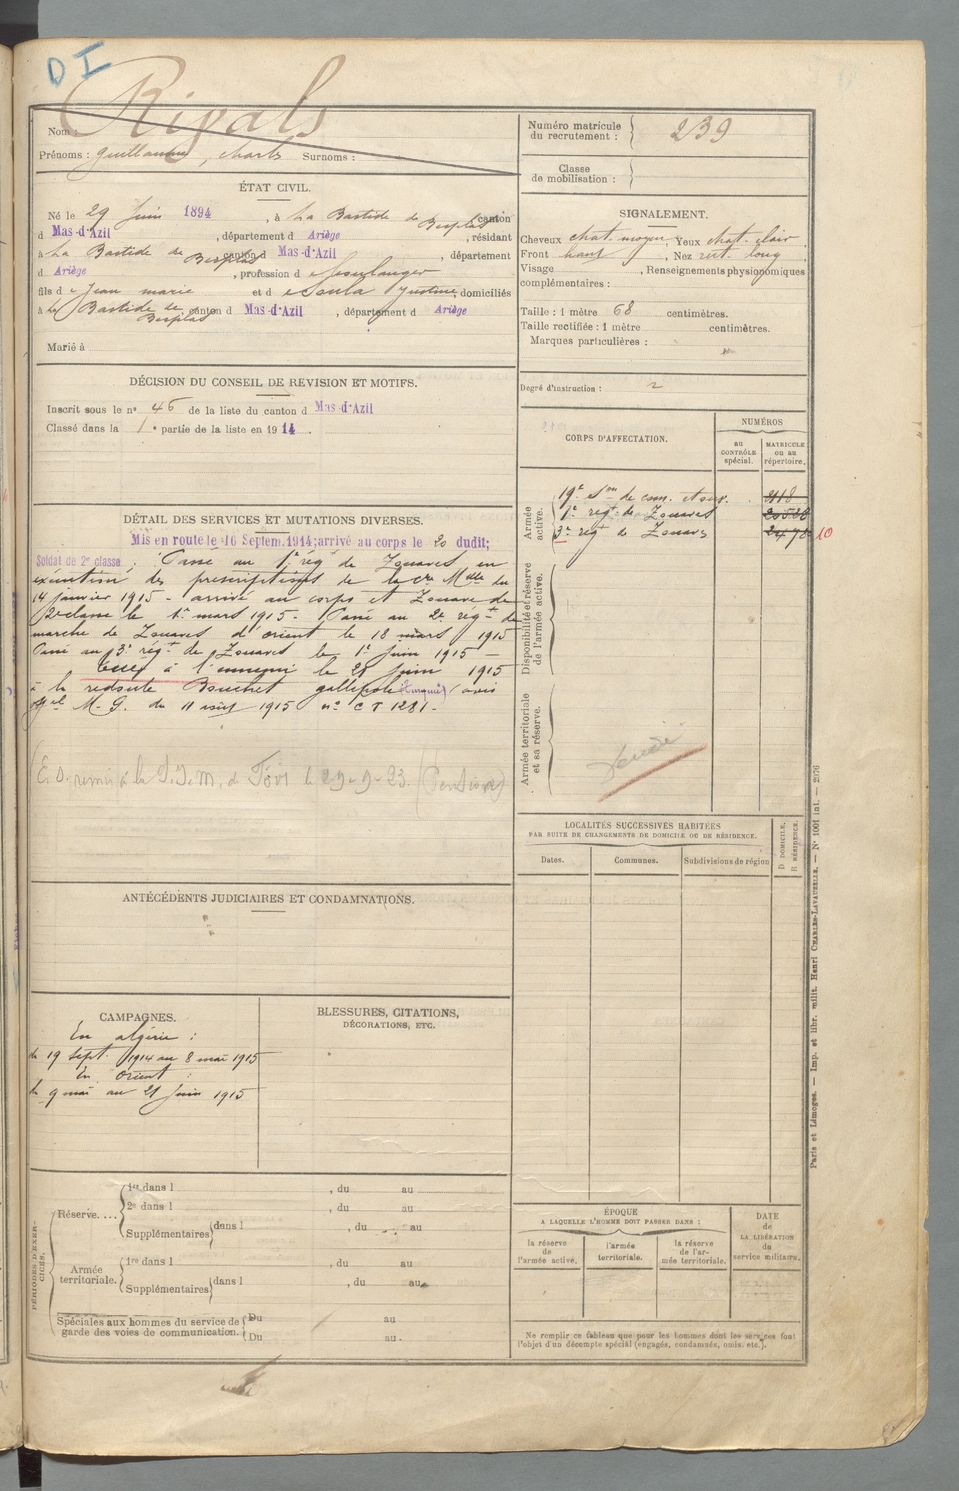 DI
Rigals
Nom :
Prénoms : Guillaume, Charles Surnoms :
ÉTAT CIVIL.
Né le 29 Juin 1894, à La Bastide de Besplas canton
d Mas-d'Azil, département d Ariège, résidant
à La Bastide de Besplas canton d Mas-d'Azil, département
d Ariège, profession d e boulanger
fils d e Jean marie et d e Soula Justine, domiciliés
à La Bastide de Besplas, canton d Mas-d'Azil, département d Ariège
Marié à
DÉCISION DU CONSEIL DE REVISION ET MOTIFS.
Inscrit sous le n° 46 de la liste du canton d Mas-d'Azil
Classé dans la 1e partie de la liste en 1914.
DÉTAIL DES SERVICES ET MUTATIONS DIVERSES.
Mis en route le 16 Septem. 1914; arrivé au corps le 20 dudit;
Soldat de 2e classe; Passé au 1r rég. de Zouaves en
exécution des prescriptions de la cre Mlle du
14 janvier 1915 - arrivé au corps et Zouave de
2e classe le 1r mars 1915. Passé au 2e régt de
marche de Zouaves d'orient le 18 mars 1915
Passé au 3e régt de Zouaves le 1r Juin 1915 -
Tué à l'ennemi le 21 Juin 1915
à la redoute Bouchet gallipoli (Turquie) (avis
M. G. du 11 août 1915 n° CT 1281.
(E. S. remis à la S.I.M. de Foix le 29-9-23. (Pensions)
ANTÉCÉDENTS JUDICIAIRES ET CONDAMNATIONS.
CAMPAGNES.
En algérie :
du 19 Sept. 1914 au 8 mai 1915
En orient :
du 9 mai au 21 Juin 1915
BLESSURES, CITATIONS,
DÉCORATIONS, ETC.
PÉRIODES D'EXERCICES.
Réserve....
1re dans l , du au
2e dans l , du au
Supplémentaires dans l , du au
Armée territoriale.
1re dans l , du au
Supplémentaires dans l , du au
Spéciales aux hommes du service de garde des voies de communication.
Du au
Du au
Numéro matricule du recrutement : 239
Classe de mobilisation :
SIGNALEMENT.
Cheveux chat. moyen, Yeux chat. clair,
Front haut, Nez rect. long
Visage , Renseignements physionomiques
complémentaires :
Taille : 1 mètre 68 centimètres.
Taille rectifiée : 1 mètre centimètres.
Marques particulières :
Degré d'instruction : 2
CORPS D'AFFECTATION.
NUMÉROS
au CONTRÔLE spécial.
MATRICULE ou au répertoire.
Armée active.
19e son de com. et ouv. 2118
1r régt de Zouaves
3e régt de Zouaves 10
Disponibilité et réserve de l'armée active.
Armée territoriale et sa réserve.
LOCALITÉS SUCCESSIVES HABITÉES
PAR SUITE DE CHANGEMENTS DE DOMICILE OU DE RÉSIDENCE.
Dates.
Communes.
Subdivisions de région
D DOMICILE.
R RÉSIDENCE.
ÉPOQUE
A LAQUELLE L'HOMME DOIT PASSER DANS :
la réserve de l'armée active.
l'armée territoriale.
la réserve de l'armée territoriale.
DATE
de
LA LIBÉRATION
du
service militaire.
Ne remplir ce tableau que pour les hommes dont les services font
l'objet d'un décompte spécial (engagés, condamnés, omis, etc.).
Paris et Limoges. — Imp. et libr. milit. Henri CHARLES-LAVAUZELLE. — N° 1001 int. — 2076